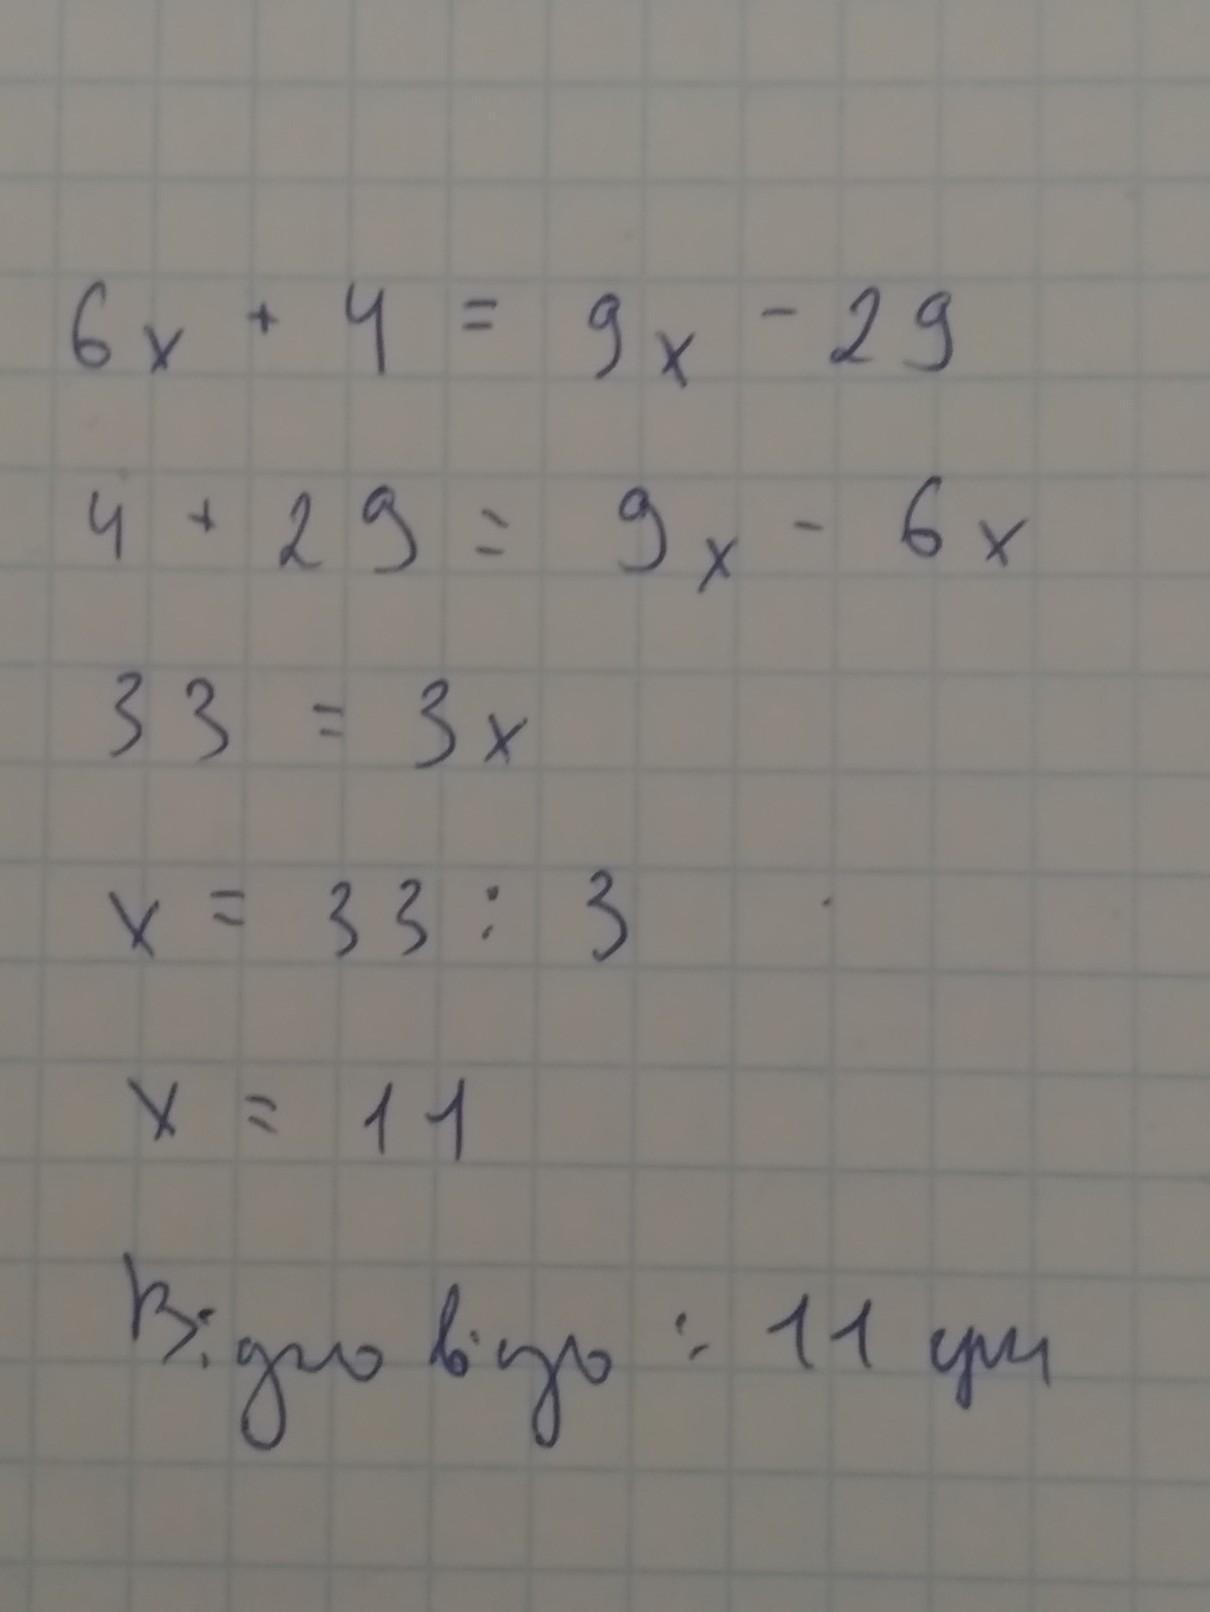 6x + 4 = 9x - 29
4 + 29 = 9x - 6x
33 = 3x
x = 33 : 3
x = 11
Відповідь : 11 грн